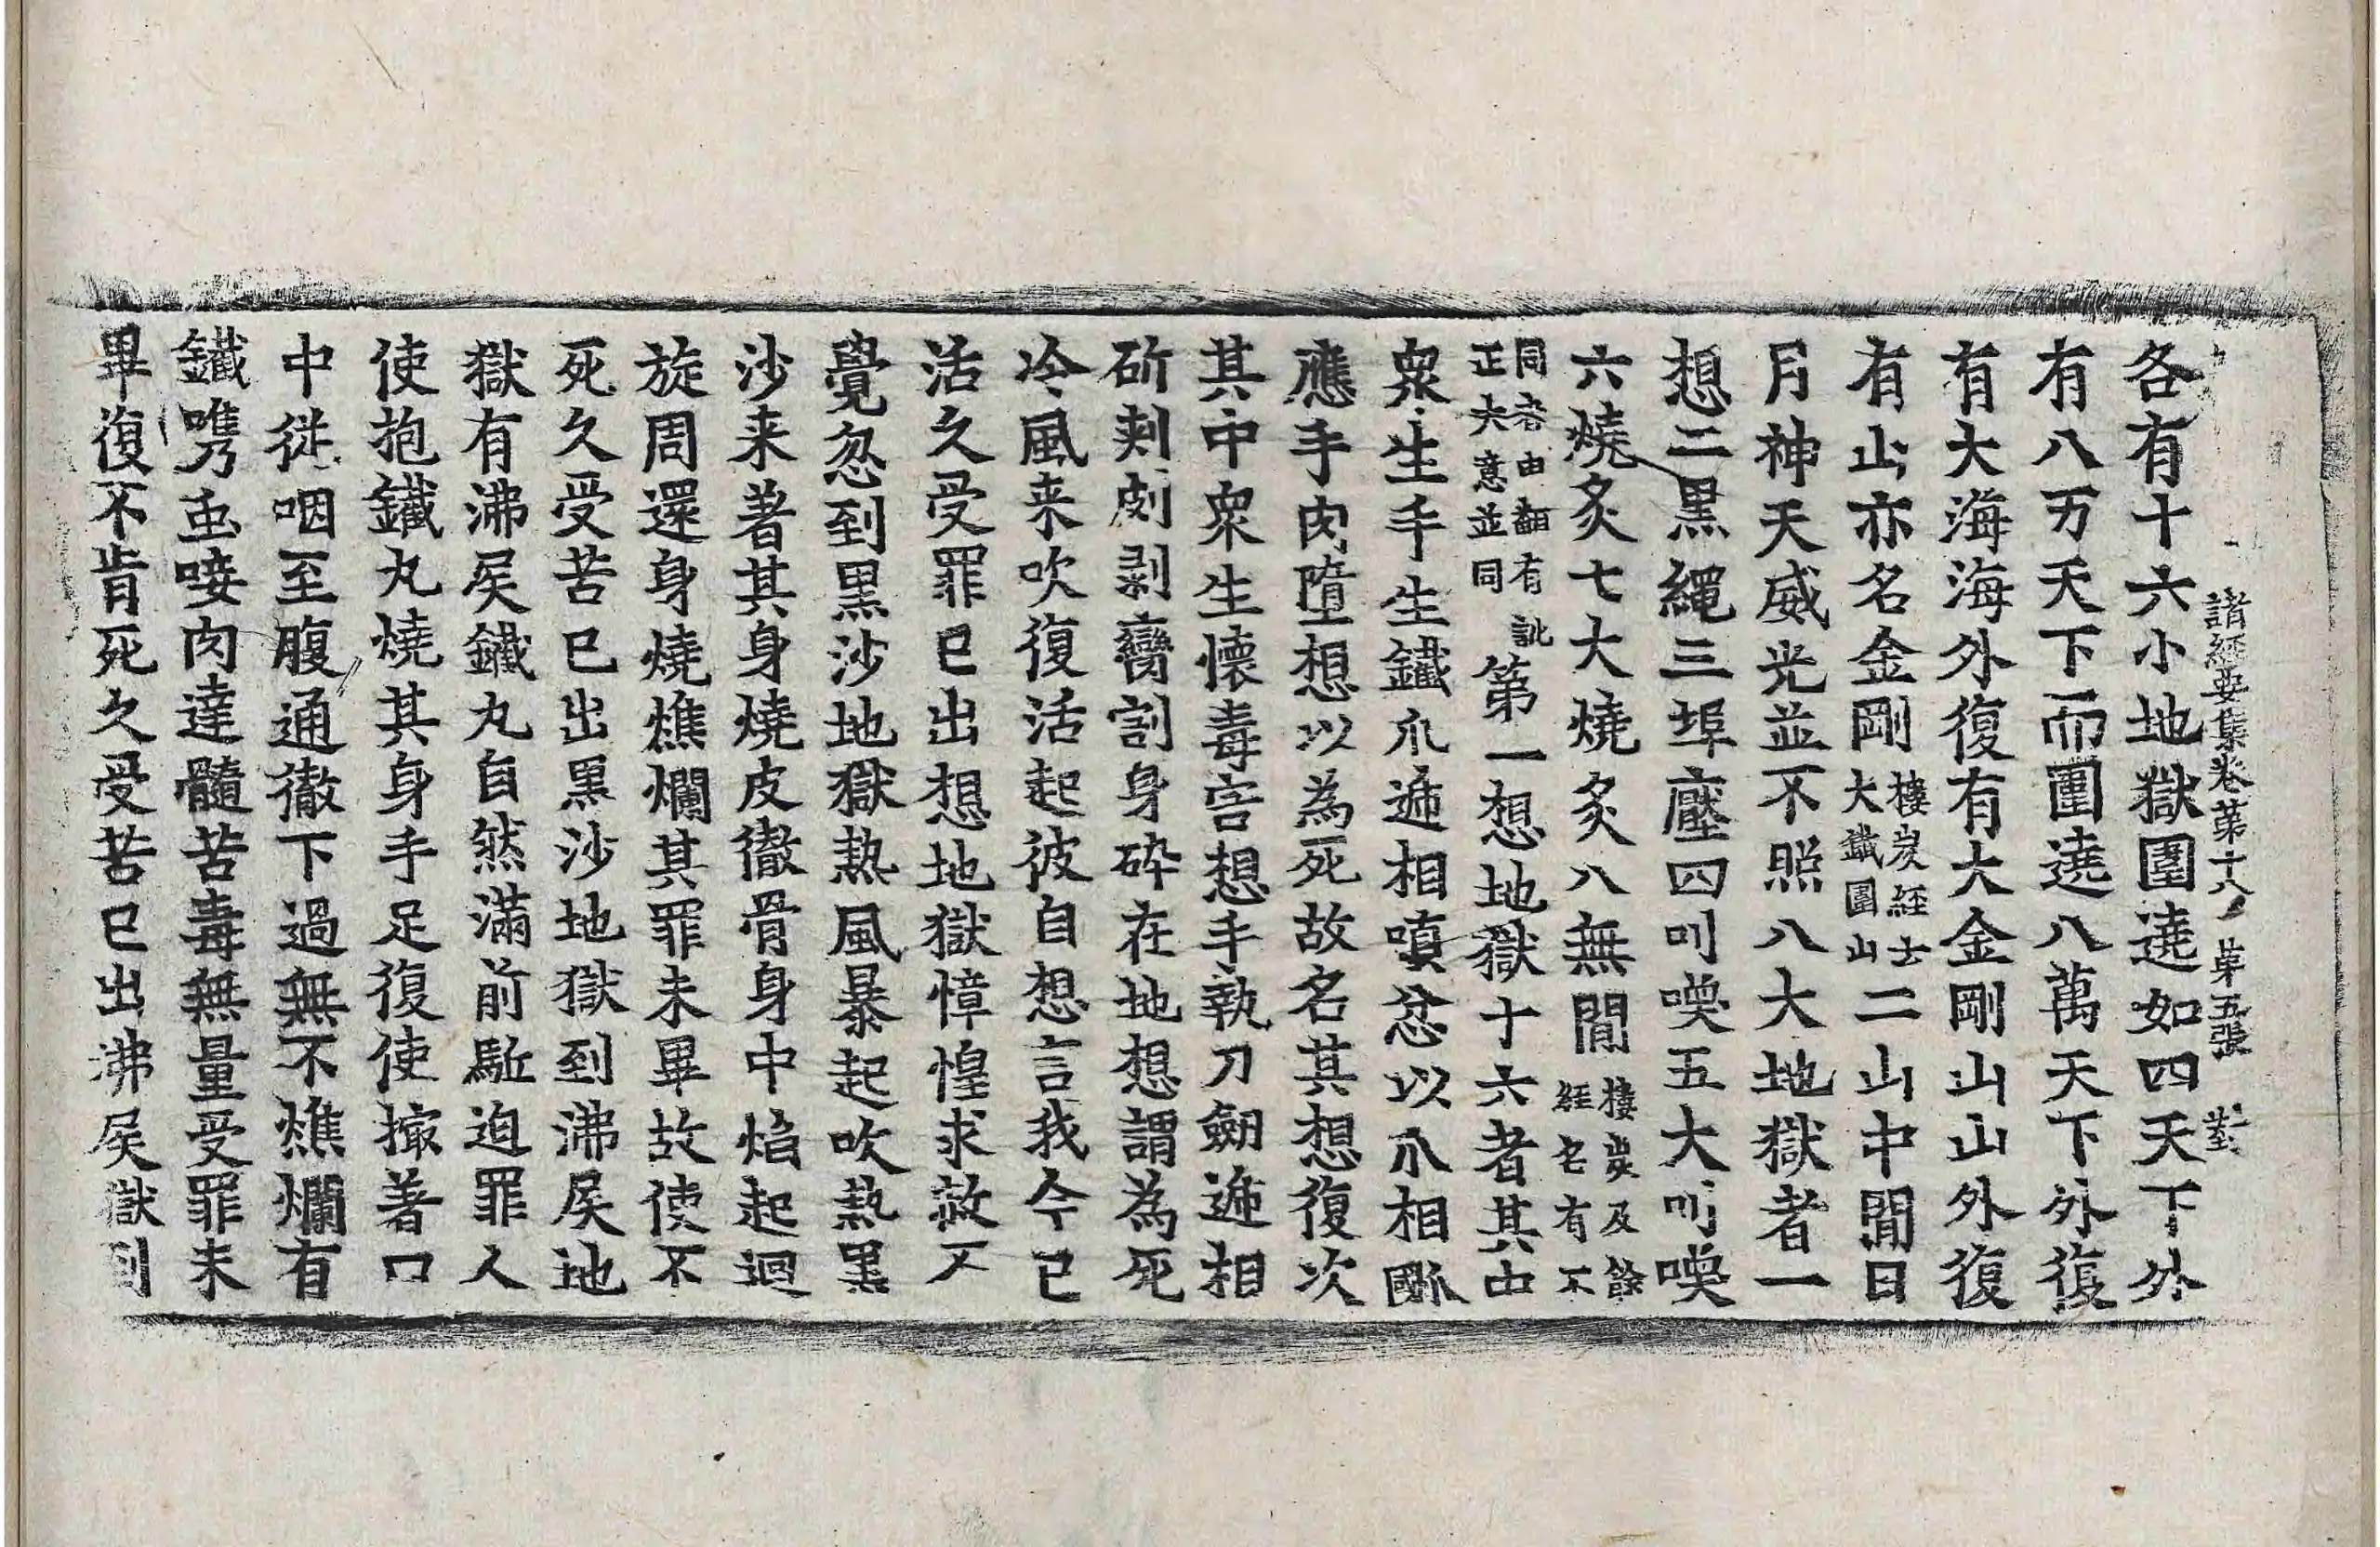 諸經要集卷第十八 第五張 對
各有十六小地獄圍遶如四天下外
有八万天下而圍遶八萬天下外復
有大海海外復有大金剛山山外復
有山亦名金剛樓炭經云大鐵圍山二山中間日
月神天威光並不照八大地獄者一
想二黑繩三埠壓四叫喚五大叫喚
六燒炙七大燒炙八無間樓炭及餘經名有不
同者由翻有訛正大意並同第一想地獄十六者其中
衆生手生鐵爪遞相嗔忿以爪相𤔩
應手肉墮想以為死故名其想復次
其中衆生懷毒害想手執刀劒遞相
斫刺剬剥臠割身碎在地想謂為死
冷風来吹復活起彼自想言我今已
活久受罪已出想地獄慞惶求救不
覺忽到黑沙地獄熱風暴起吹熱黑
沙来著其身燒皮徹骨身中焰起迴
旋周還身燒燋爛其罪未畢故使不
死久受苦已出黑沙地獄到沸屎地
獄有沸屎鐵丸自然滿前駈迫罪人
使抱鐵丸燒其身手足復使撮著口
中從咽至腹通徹下過無不燋爛有
鐵㗱虫唼肉達髓苦毒無量受罪未
畢復不肯死久受苦已出沸屎獄到